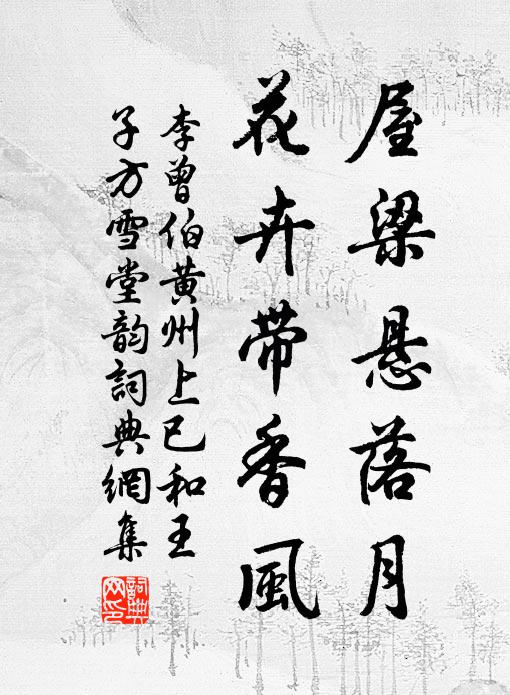 屋梁悬落月
花卉带香風
李曾伯黄州上巳和王
子方雪堂韵詞典網集